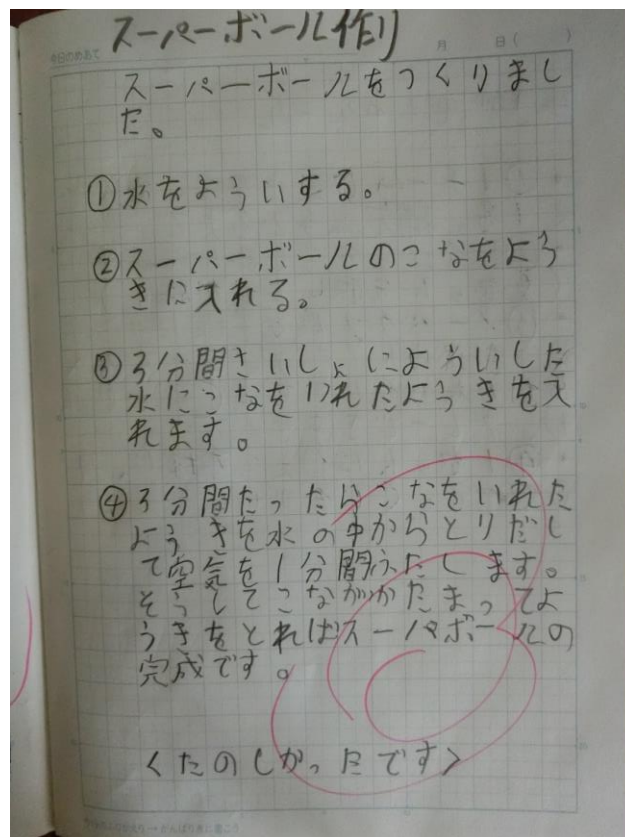 スーパーボール作り
今日のめあて
月 日( )
スーパーボールをつくりまし
た。
①水をよういする。
②スーパーボールのこなをよう
きに入れる。
③3分間さいしょによういした
水にこなをいれたようきを入
れます。
④3分間たったらこなをいれた
ようきを水の中からとりだし
て空気を1分間ふたします。
そうしてこながかたまってよ
うきをとればスーパボールの
完成です。
<たのしかったです>